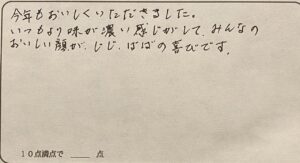 今年もおいしくいただきました。
いつもより味が濃い感じがして、みんなの
おいしい顔が、じじ、ばばの喜びです。
10点満点で____点